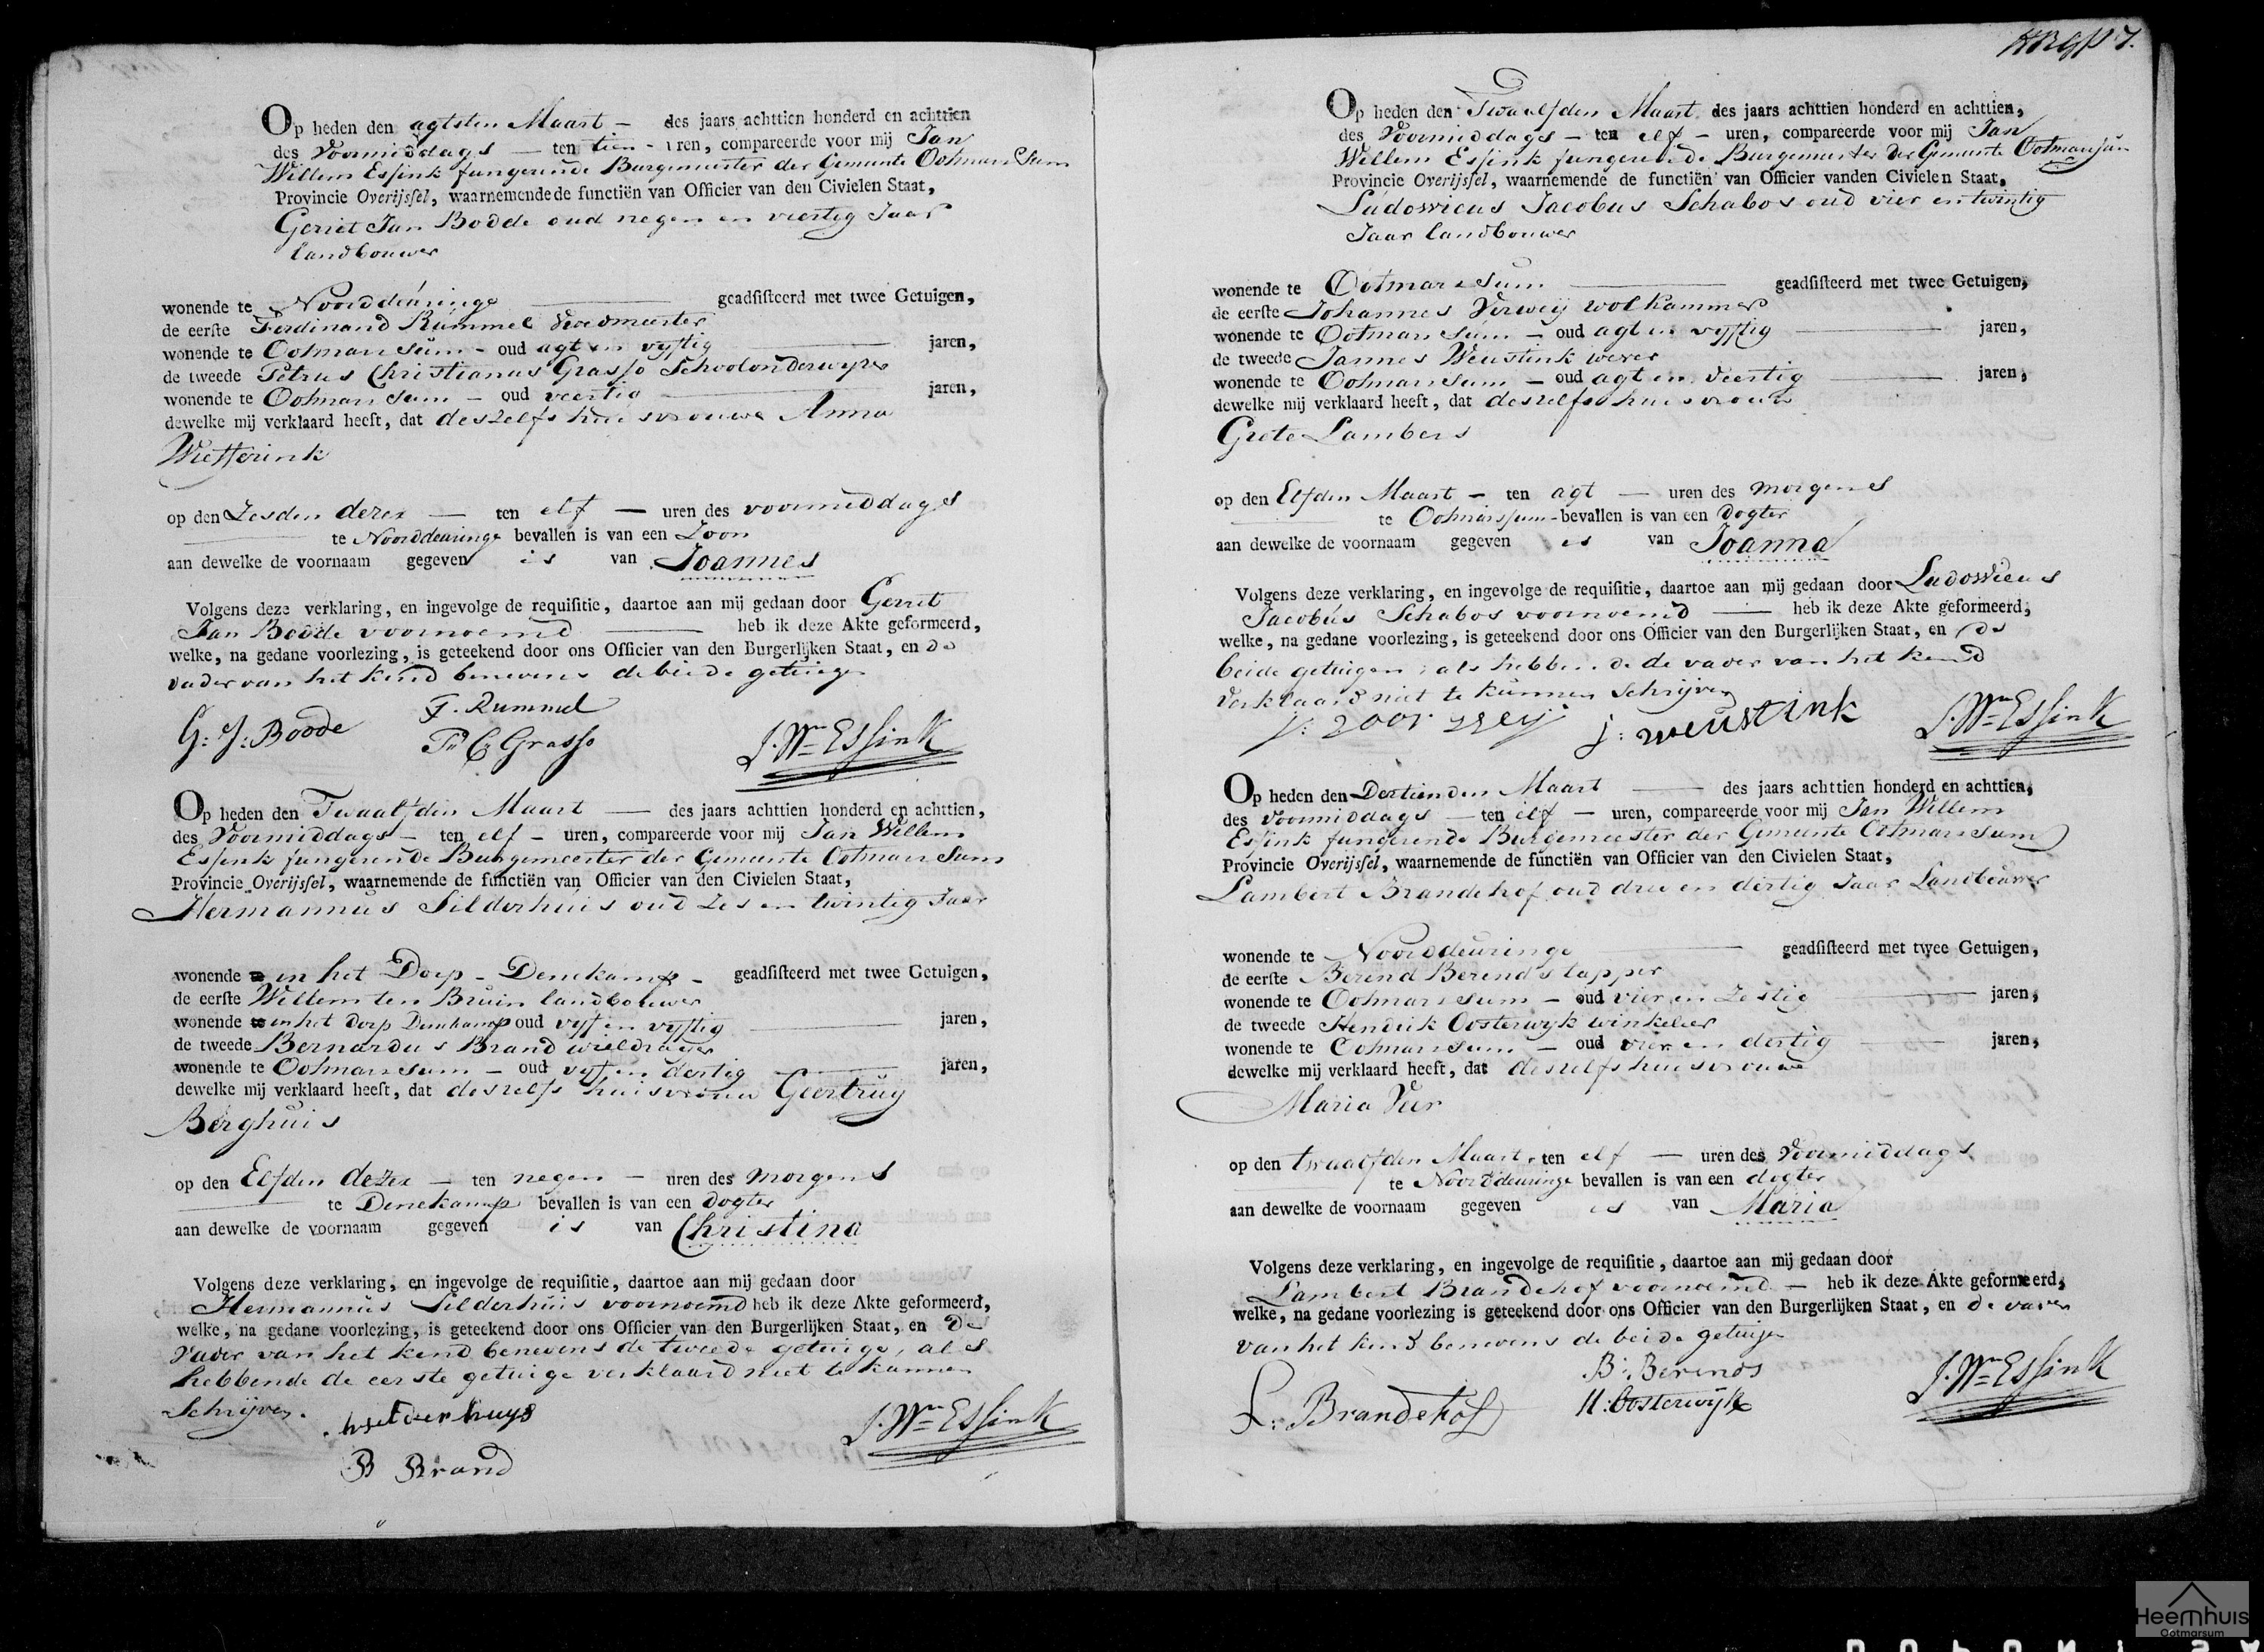 Op heden den agtsten Maart - des jaars achttien honderd en achttien
des Voormiddags - ten tien - uren, compareerde voor mij Jan
Willem Essink fungerende Burgemeester der Gemeente Ootmarssum
Provincie Overijssel, waarnemende de functiën van Officier van den Civielen Staat,
Gerret Jan Bodde oud negen en veertig Jaar
landbouwer
wonende te Noorddeuringe geadsisteerd met twee Getuigen,
de eerste Ferdinand Rummel Vroedmeester
wonende te Ootmarssum - oud agt en vyftig jaren,
de tweede Petrus Christianus Grasso Schoolonderwyzer
wonende te Ootmarssum - oud veertig jaren,
dewelke mij verklaard heeft, dat deszelfs huisvrouwe Anna
Wiefferink
op den Zesden dezer - ten elf - uren des voormiddags
te Noorddeuringe bevallen is van een Zoon
aan dewelke de voornaam gegeven is van Joannes
Volgens deze verklaring, en ingevolge de requisitie, daartoe aan mij gedaan door Gerret
Jan Bodde voornoemd heb ik deze Akte geformeerd,
welke, na gedane voorlezing, is geteekend door ons Officier van den Burgerlijken Staat, en de
vader van het kend benevens de beide getuigen
G: J: Bodde F. Rummel
P: C: Grasso J. Wm Essink
Op heden den Twaalfden Maart - des jaars achttien honderd en achttien,
des Voormiddags - ten elf - uren, compareerde voor mij Jan Willem
Essink fungerende Burgemeester der Gemeente Ootmarssum
Provincie Overijssel, waarnemende de functiën van Officier van den Civielen Staat,
Hermannus Silderhuis oud zes en twintig Jaar
wonende in het Dorp - Denekamp - geadsisteerd met twee Getuigen,
de eerste Willem ten Bruin landbouwer
wonende in het dorp Denekamp oud vyf en vyftig jaren,
de tweede Bernardus Brand wieldrayer
wonende te Ootmarssum - oud vyf en dertig jaren,
dewelke mij verklaard heeft, dat deszelfs huisvrouw Geertruy
Berghuis
op den Elfden dezer - ten negen - uren des morgens
te Denekamp bevallen is van een dogter
aan dewelke de voornaam gegeven is van Christina
Volgens deze verklaring, en ingevolge de requisitie, daartoe aan mij gedaan door
Hermannus Silderhuis voornoemd heb ik deze Akte geformeerd,
welke, na gedane voorlezing, is geteekend door ons Officier van den Burgerlijken Staat, en de
Vader van het kend benevens de tweede getuige, als
hebbende de eerste getuige verklaard niet te kunnen
Schrijven. h silderhuys J. Wm Essink
B Brand
7.
Op heden den Twaalfden Maart des jaars achttien honderd en achttien,
des Voormiddags - ten elf - uren, compareerde voor mij Jan
Willem Essink fungerende Burgemeester der Gemeente Ootmarssum
Provincie Overijssel, waarnemende de functiën van Officier vanden Civielen Staat,
Ludowicus Jacobus Schabos oud vier en twintig
Jaar landbouwer
wonende te Ootmarssum geadsisteerd met twee Getuigen,
de eerste Johannes Verweij wolkammer
wonende te Ootmarssum - oud agt en vyftig jaren,
de tweede Jannes Weustink wever
wonende te Ootmarssum - oud agt en veertig jaren,
dewelke mij verklaard heeft, dat deszelfs huisvrouw
Grete Lambers
op den Elfden Maart - ten agt - uren des morgens
te Ootmarssum - bevallen is van een dogter
aan dewelke de voornaam gegeven is van Joanna
Volgens deze verklaring, en ingevolge de requisitie, daartoe aan mij gedaan door Ludowicus
Jacobus Schabos voornoemd - heb ik deze Akte geformeerd,
welke, na gedane voorlezing, is geteekend door ons Officier van den Burgerlijken Staat, en de
beide getuigen, als hebbende de vader van het kend
verklaard niet te kunnen Schrijven
j: weustink J. Wm Essink
Op heden den Dertienden Maart - des jaars achttien honderd en achttien,
des voormiddags - ten elf - uren, compareerde voor mij Jan Willem
Essink fungerende Burgemeester der Gemeente Ootmarssum
Provincie Overijssel, waarnemende de functiën van Officier van den Civielen Staat,
Lambert Brandehof oud drie en dertig Jaar Landbouwer
wonende te Noorddeuringe geadsisteerd met twee Getuigen,
de eerste Berend Berends tapper
wonende te Ootmarssum - oud vier en Zestig jaren,
de tweede Hendrik Oosterwyk winkelier
wonende te Ootmarssum - oud vier en dertig jaren,
dewelke mij verklaard heeft, dat deszelfs huisvrouwe
Maria Veer
op den twaalfden Maart, ten elf - uren des Voormiddags
te Noorddeuringe bevallen is van een dogter
aan dewelke de voornaam gegeven is van Maria
Volgens deze verklaring, en ingevolge de requisitie, daartoe aan mij gedaan door
Lambert Brandehof voornoemd - heb ik deze Akte geformeerd,
welke, na gedane voorlezing is geteekend door ons Officier van den Burgerlijken Staat, en de vader
van het kend benevens de beide getuigen
B: Berends J. Wm Essink
L: Brandehof H: Oosterwijk
Heemhuis
Ootmarsum